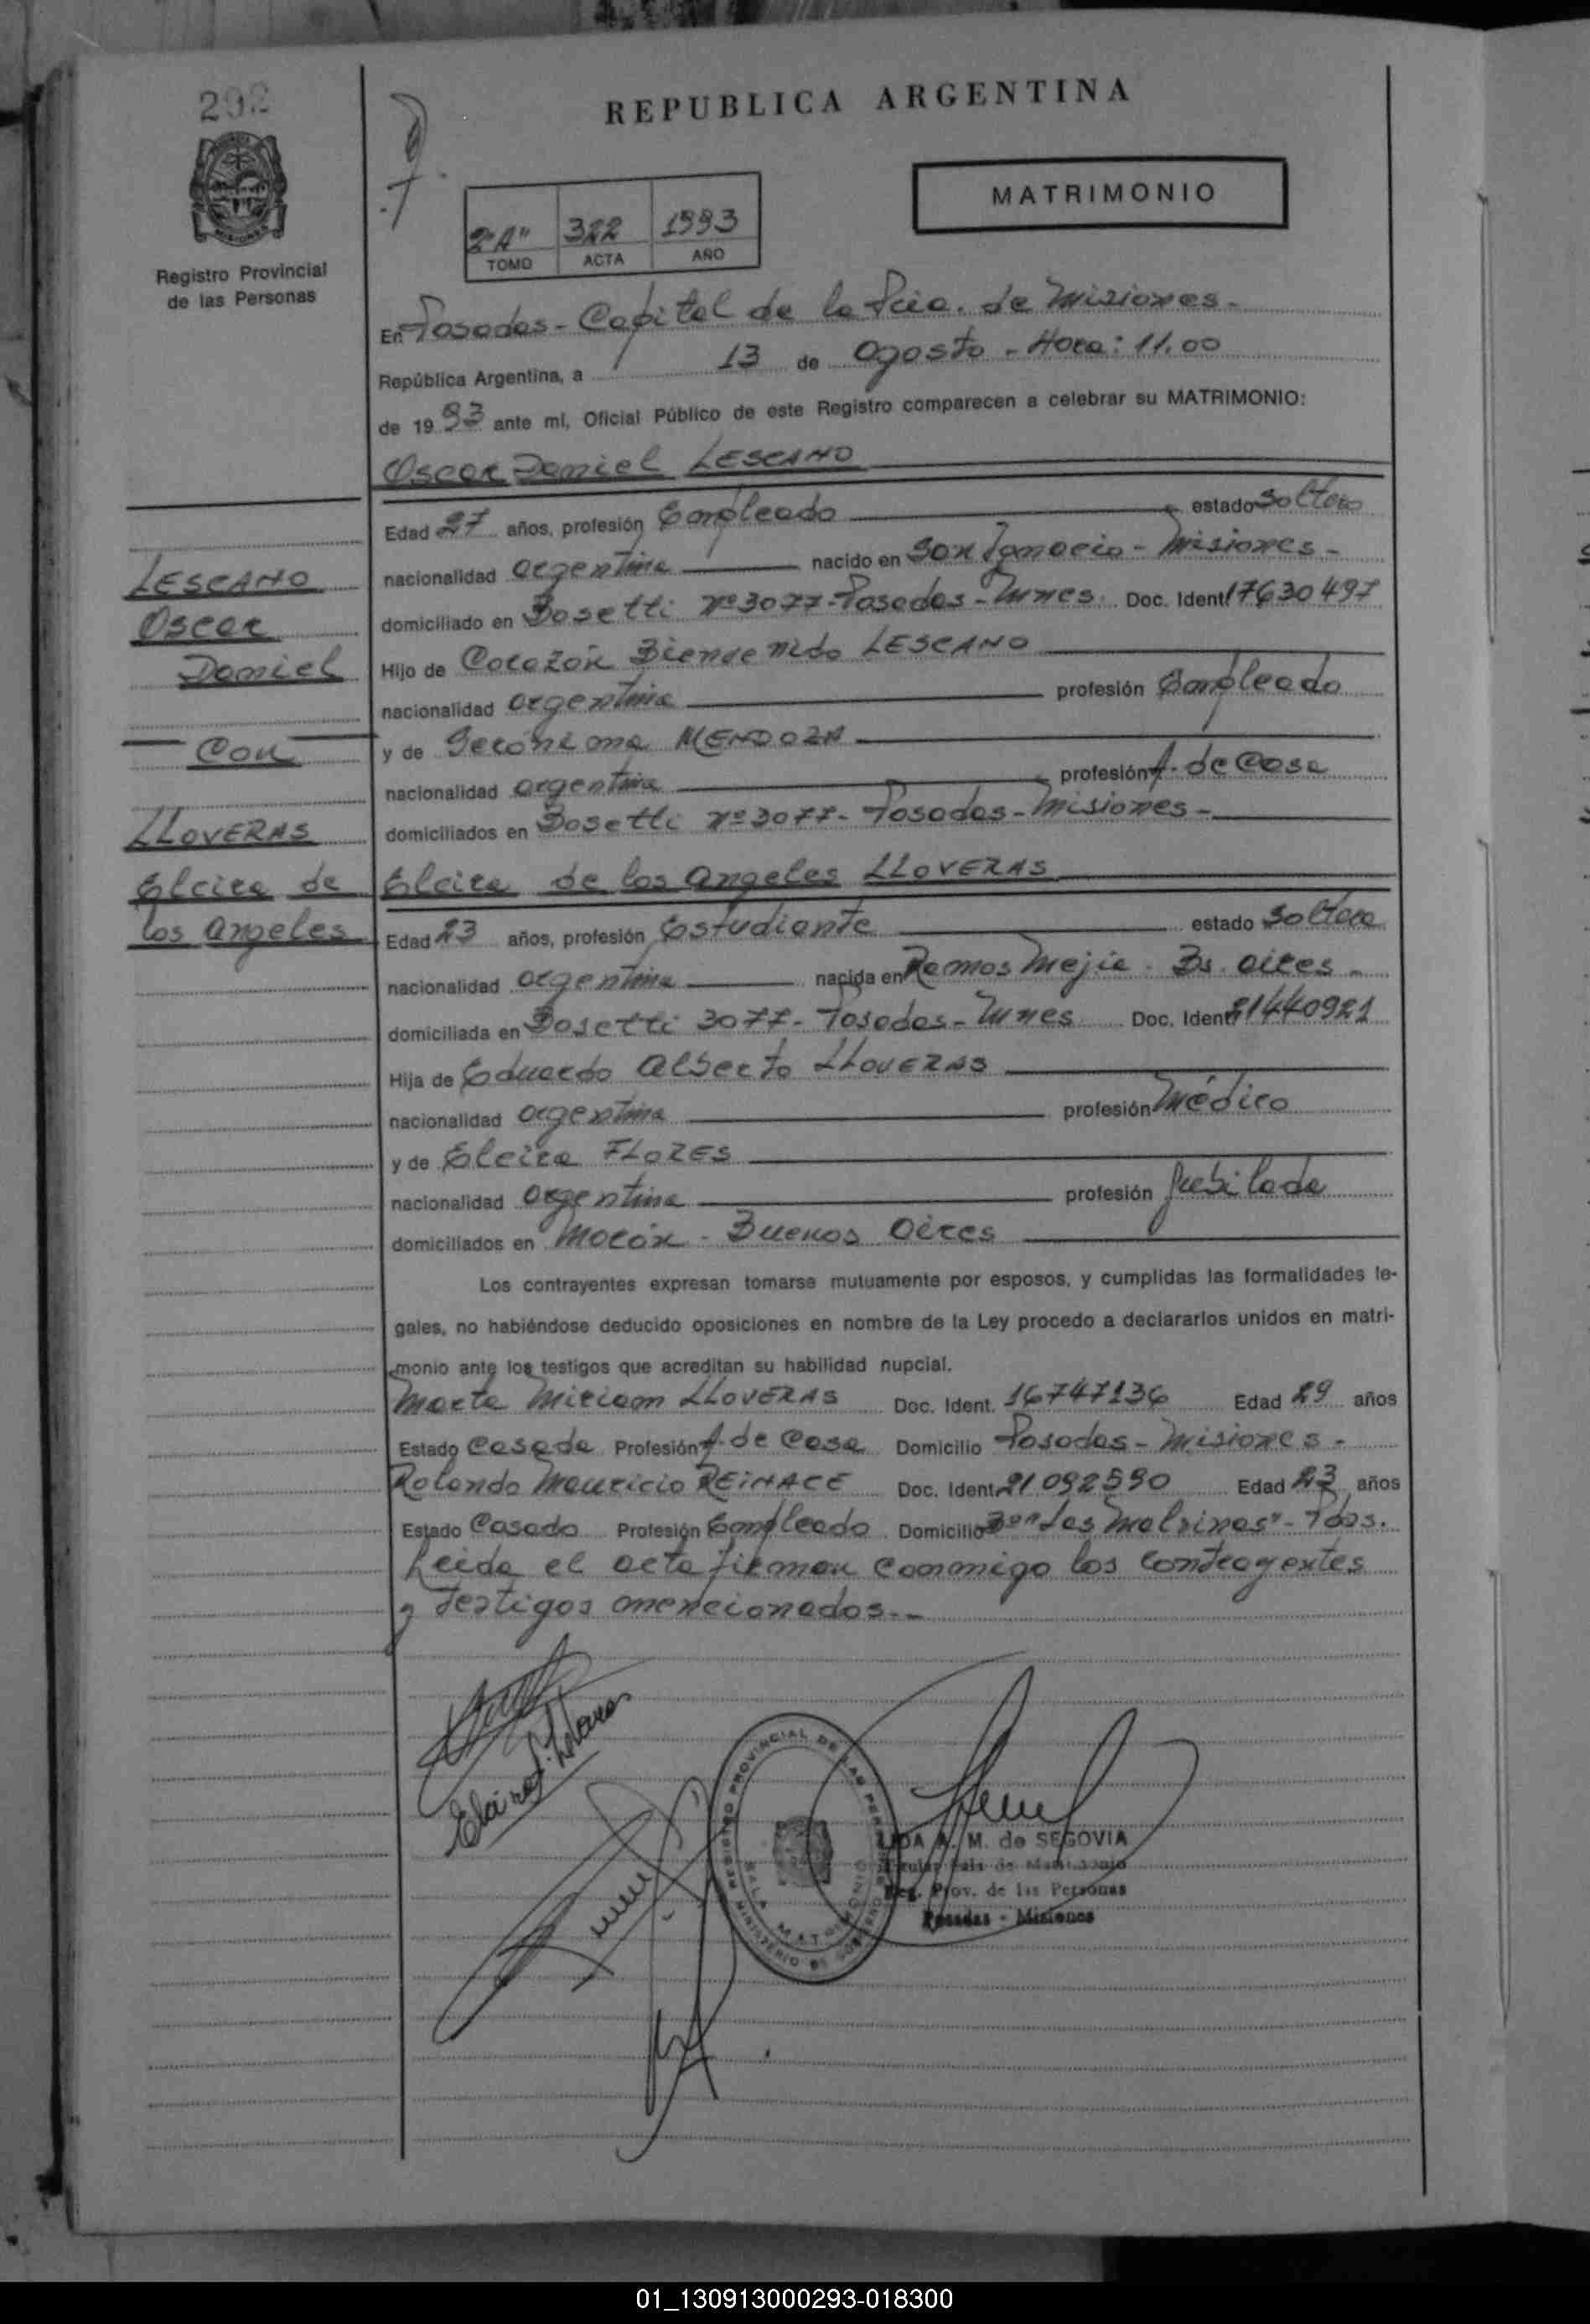 292
REPUBLICA ARGENTINA
MATRIMONIO
2"A" 322 1993
TOMO ACTA AÑO
MISIONES
Registro Provincial
de las Personas
En Posadas - Capital de la Pcia. de Misiones -
República Argentina, a 13 de Agosto - Hora: 11.00
de 19 93 ante mí, Oficial Público de este Registro comparecen a celebrar su MATRIMONIO:
Oscar Daniel LESCANO
Edad 27 años, profesión Empleado estado Soltero
nacionalidad argentina nacido en San Ignacio - Misiones -
domiciliado en Bosetti nº 3077 - Posadas - Mnes. Doc. Ident. 17630497
Hijo de Corazón Bienvenido LESCANO
nacionalidad argentina profesión Empleado
y de Gerónima MENDOZA
nacionalidad argentina profesión A. de Casa
domiciliados en Bosetti nº 3077 - Posadas - Misiones -
LESCANO
Oscar
Daniel
Con
LLOVERAS
Elcira de
los Angeles
Elcira de los Angeles LLOVERAS
Edad 23 años, profesión Estudiante estado Soltera
nacionalidad argentina nacida en Ramos Mejia - Bs. Aires -
domiciliada en Bosetti 3077 - Posadas - Mnes Doc. Ident. 21440921
Hija de Eduardo Alberto LLOVERAS
nacionalidad argentina profesión Médico
y de Elcira FLORES
nacionalidad argentina profesión Jubilada
domiciliados en Morón - Buenos Aires
Los contrayentes expresan tomarse mutuamente por esposos, y cumplidas las formalidades le-
gales, no habiéndose deducido oposiciones en nombre de la Ley procedo a declararlos unidos en matri-
monio ante los testigos que acreditan su habilidad nupcial.
Marta Miriam LLOVERAS Doc. Ident. 16747136 Edad 29 años
Estado Casada Profesión A. de Casa Domicilio Posadas - Misiones -
Rolando Mauricio REINACE Doc. Ident. 21092590 Edad 23 años
Estado Casado Profesión Empleado Domicilio Bº "Las Malvinas" - Pdas.
Leida el acta firman conmigo los contrayentes
y testigos mencionados. -
REGISTRO PROVINCIAL DE LAS PERSONAS
SALA MATRIMONIO
MINISTERIO DE GOBIERNO
M. de SEGOVIA
Titular Sala de Matrimonio
Reg. Prov. de las Personas
Posadas - Misiones
01_130913000293-018300